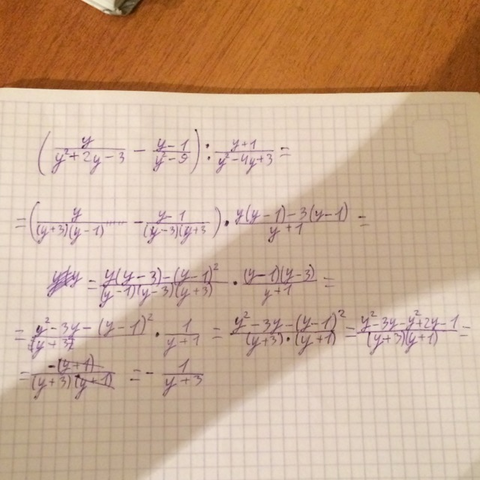 (y/(y²+2y-3) - (y-1)/(y²-9)) : (y+1)/(y²-4y+3) =
= (y/((y+3)(y-1)) - (y-1)/((y-3)(y+3)) · (y(y-1)-3(y-1))/(y+1) =
= (y(y-3)-(y-1)²)/((y-1)(y-3)(y+3)) · ((y-1)(y-3))/(y+1) =
= (y²-3y-(y-1)²)/(y+3) · 1/(y+1) = (y²-3y-(y-1)²)/((y+3)·(y+1)) = (y²-3y-y²+2y-1)/((y+3)(y+1)) =
= (-(y+1))/((y+3)·(y+1)) = - 1/(y+3)